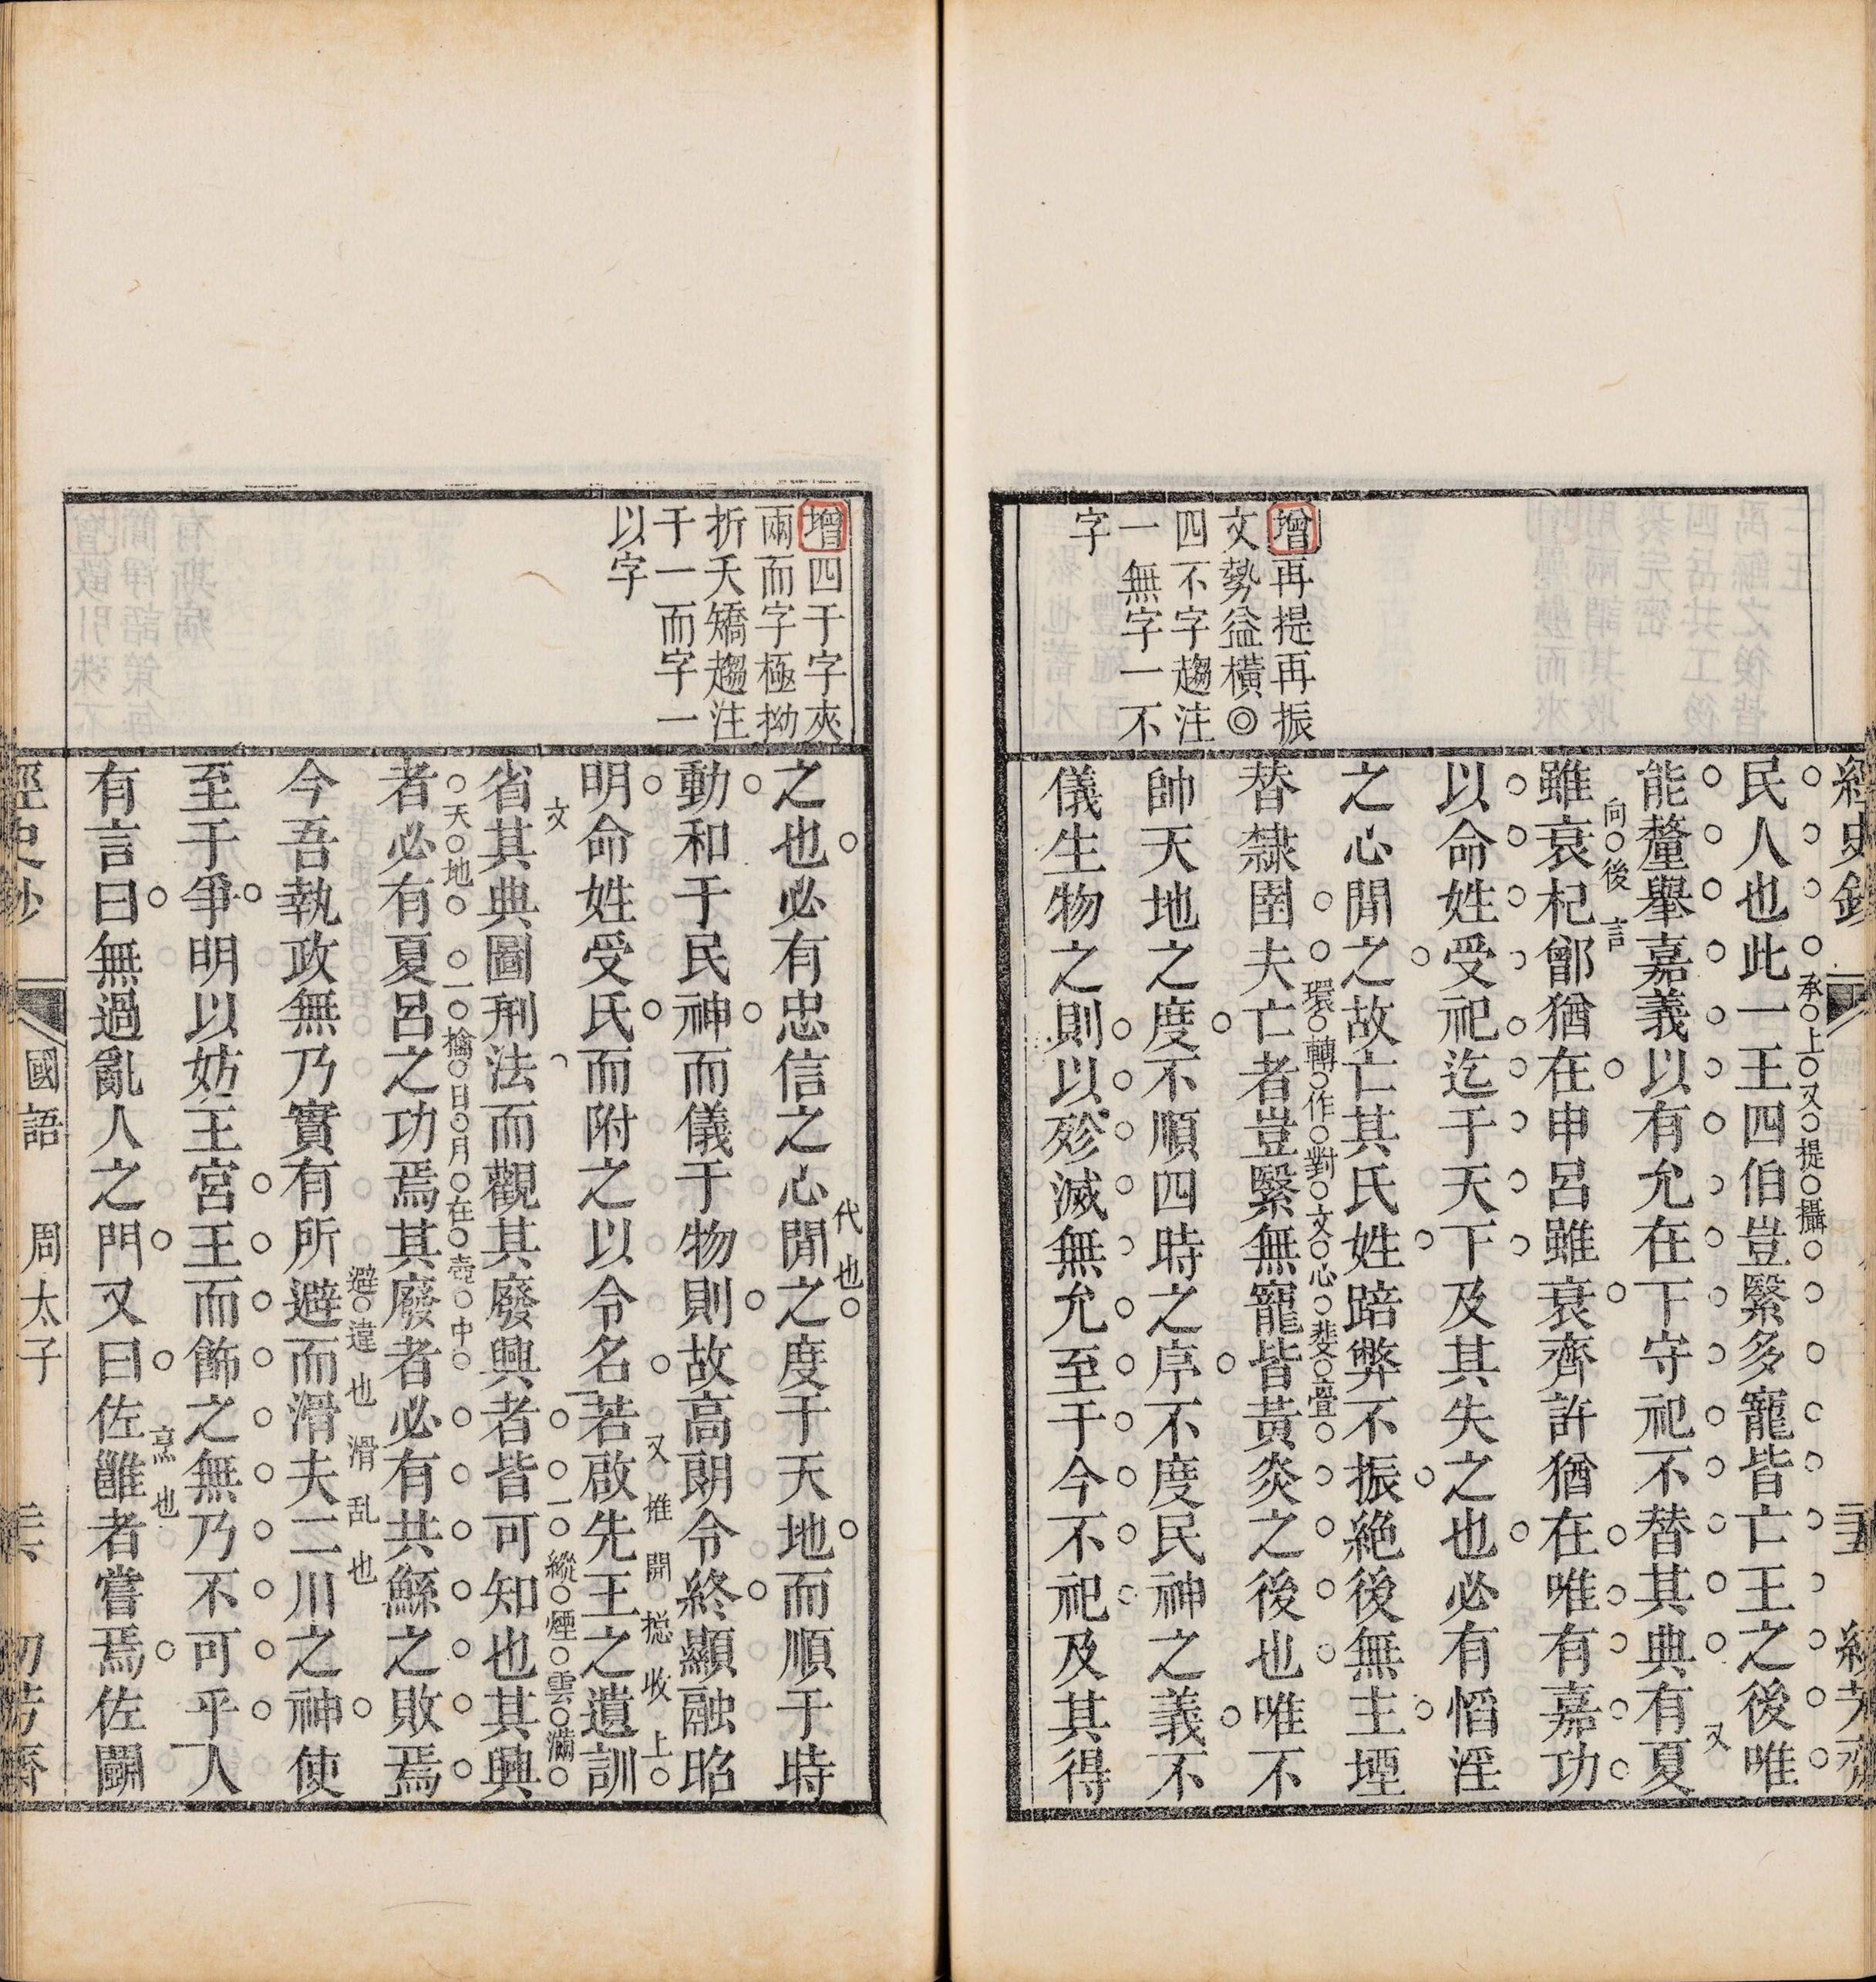 經史鈔
國語
增再提再振
文勢益橫◎
四不字趨注
一無字一不
字
民人也此一王四伯豈繄多寵皆亡王之後唯
承上又提攝
能釐舉嘉義以有允在下守祀不替其典有夏
又
雖衰杞鄫猶在申呂雖衰齊許猶在唯有嘉功
向後言
以命姓受祀迄于天下及其失之也必有慆淫
之心閒之故亡其氏姓踣弊不振絕後無主堙
替隸圉夫亡者豈繄無寵皆黃炎之後也唯不
環轉作對文心斐亹
帥天地之度不順四時之序不度民神之義不
儀生物之則以殄滅無允至于今不祀及其得
增四于字夾
兩而字極拗
折夭矯趨注
于一而字一
以字
之也必有忠信之心閒之度于天地而順于時
代也
動和于民神而儀于物則故高朗令終顯融昭
明命姓受氏而附之以令名若啟先王之遺訓
又推開捴收上
省其典圖刑法而觀其廢興者皆可知也其興
文一縱煙雲滿
者必有夏呂之功焉其廢者必有共鯀之敗焉
天地一擒日月在壺中
今吾執政無乃實有所避而滑夫二川之神使
避違也滑乱也
至于爭明以妨王宮王而飾之無乃不可乎人
有言曰無過亂人之門又曰佐雝者嘗焉佐鬭
烹也
經史鈔
國語
周太子